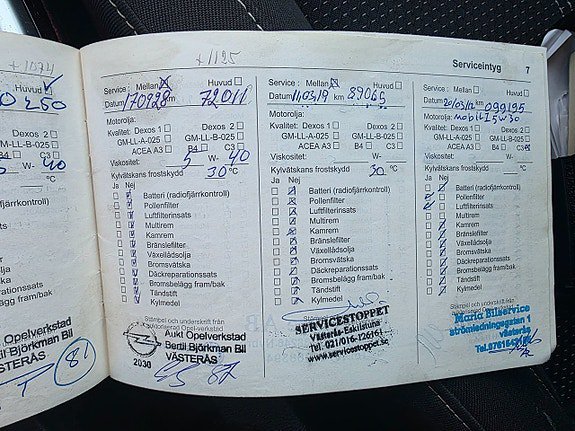 +1074
Huvud
W- 40
B4 C3
°C
Auki Opelverkstad
Bertil Björkman Bil
VÄSTERÅS
+1125
Serviceintyg 7
Service: Mellan Huvud
Datum 170928 km 72011
Motorolja:
Kvalitet: Dexos 1 Dexos 2
GM-LL-A-025 GM-LL-B-025
ACEA A3 B4 C3
Viskositet: 5 W- 40
Kylvätskans frostskydd 30 °C
Ja Nej
Batteri (radiofjärrkontroll)
Pollenfilter
Luftfilterinsats
Multirem
Kamrem
Bränslefilter
Växellådsolja
Bromsvätska
Däckreparationssats
Bromsbelägg fram/bak
Tändstift
Kylmedel
Stämpel och underskrift från
auktoriserad Opel-verkstad
Aukt Opelverkstad
Bertil Björkman Bil
VÄSTERÅS
2030
Service: Mellan Huvud
Datum 11/03,19 km 89065
Motorolja:
Kvalitet: Dexos 1 Dexos 2
GM-LL-A-025 GM-LL-B-025
ACEA A3 B4 C3
Viskositet: W-
Kylvätskans frostskydd 30 °C
Ja Nej
Batteri (radiofjärrkontroll)
Pollenfilter
Luftfilterinsats
Multirem
Kamrem
Bränslefilter
Växellådsolja
Bromsvätska
Däckreparationssats
Bromsbelägg fram/bak
Tändstift
Kylmedel
SERVICESTOPPET
Västerås-Eskilstuna
Tel: 021/016-126161
www.servicestoppet.se
Service: Mellan Huvud
Datum 20/03/12 km 099195
Motorolja: mobil 1 5w30
Kvalitet: Dexos 1 Dexos 2
GM-LL-A-025 GM-LL-B-025
ACEA A3 B4 C3
Viskositet: W-
Kylvätskans frostskydd °C
Ja Nej
Batteri (radiofjärrkontroll)
Pollenfilter
Luftfilterinsats
Multirem
Kamrem
Bränslefilter
Växellådsolja
Bromsvätska
Däckreparationssats
Bromsbelägg fram/bak
Tändstift
Kylmedel
Stämpel och underskrift från
Mario Bilservice
strömledningsgatan 1
västerås